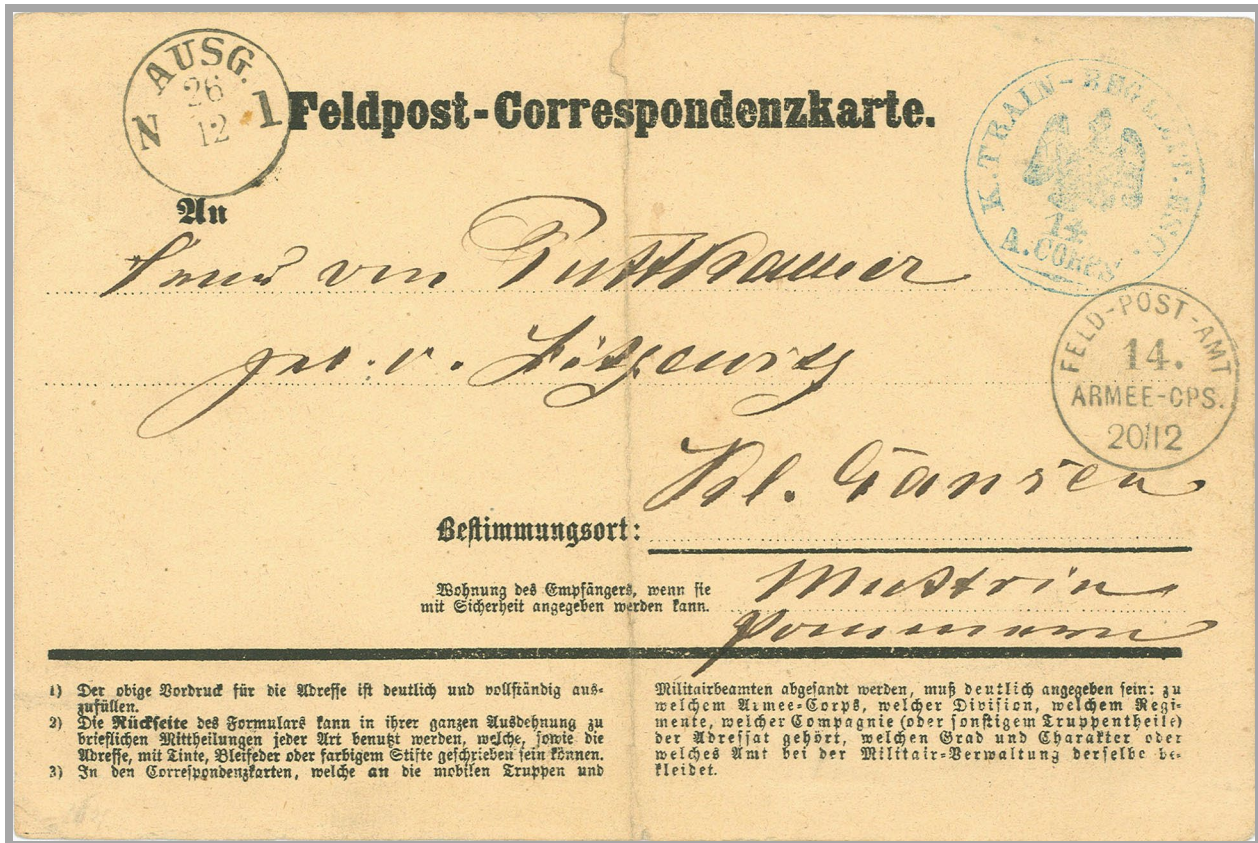 AUSG.
26
12
N 1
Feldpost-Correspondenzkarte.
K. TRAIN-BEGLEIT. ESC.
14
A. CORPS
FELD-POST-AMT
14.
ARMEE-CPS.
20/12
An
Frau von Puttkamer
geb. v. Zitzewitz
Kl. Gansen
Bestimmungsort:
Wohnung des Empfängers, wenn sie
mit Sicherheit angegeben werden kann.
Muttrin
Pommern
1) Der obige Vordruck für die Adresse ist deutlich und vollständig aus-
zufüllen.
2) Die Rückseite des Formulars kann in ihrer ganzen Ausdehnung zu
brieflichen Mittheilungen jeder Art benutzt werden, welche, sowie die
Adresse, mit Tinte, Bleifeder oder farbigem Stifte geschrieben sein können.
3) In den Correspondenzkarten, welche an die mobilen Truppen und
Militairbeamten abgesandt werden, muß deutlich angegeben sein: zu
welchem Armee-Corps, welcher Division, welchem Regi-
mente, welcher Compagnie (oder sonstigem Truppentheile)
der Adressat gehört, welchen Grad und Charakter oder
welches Amt bei der Militair-Verwaltung derselbe be-
kleidet.